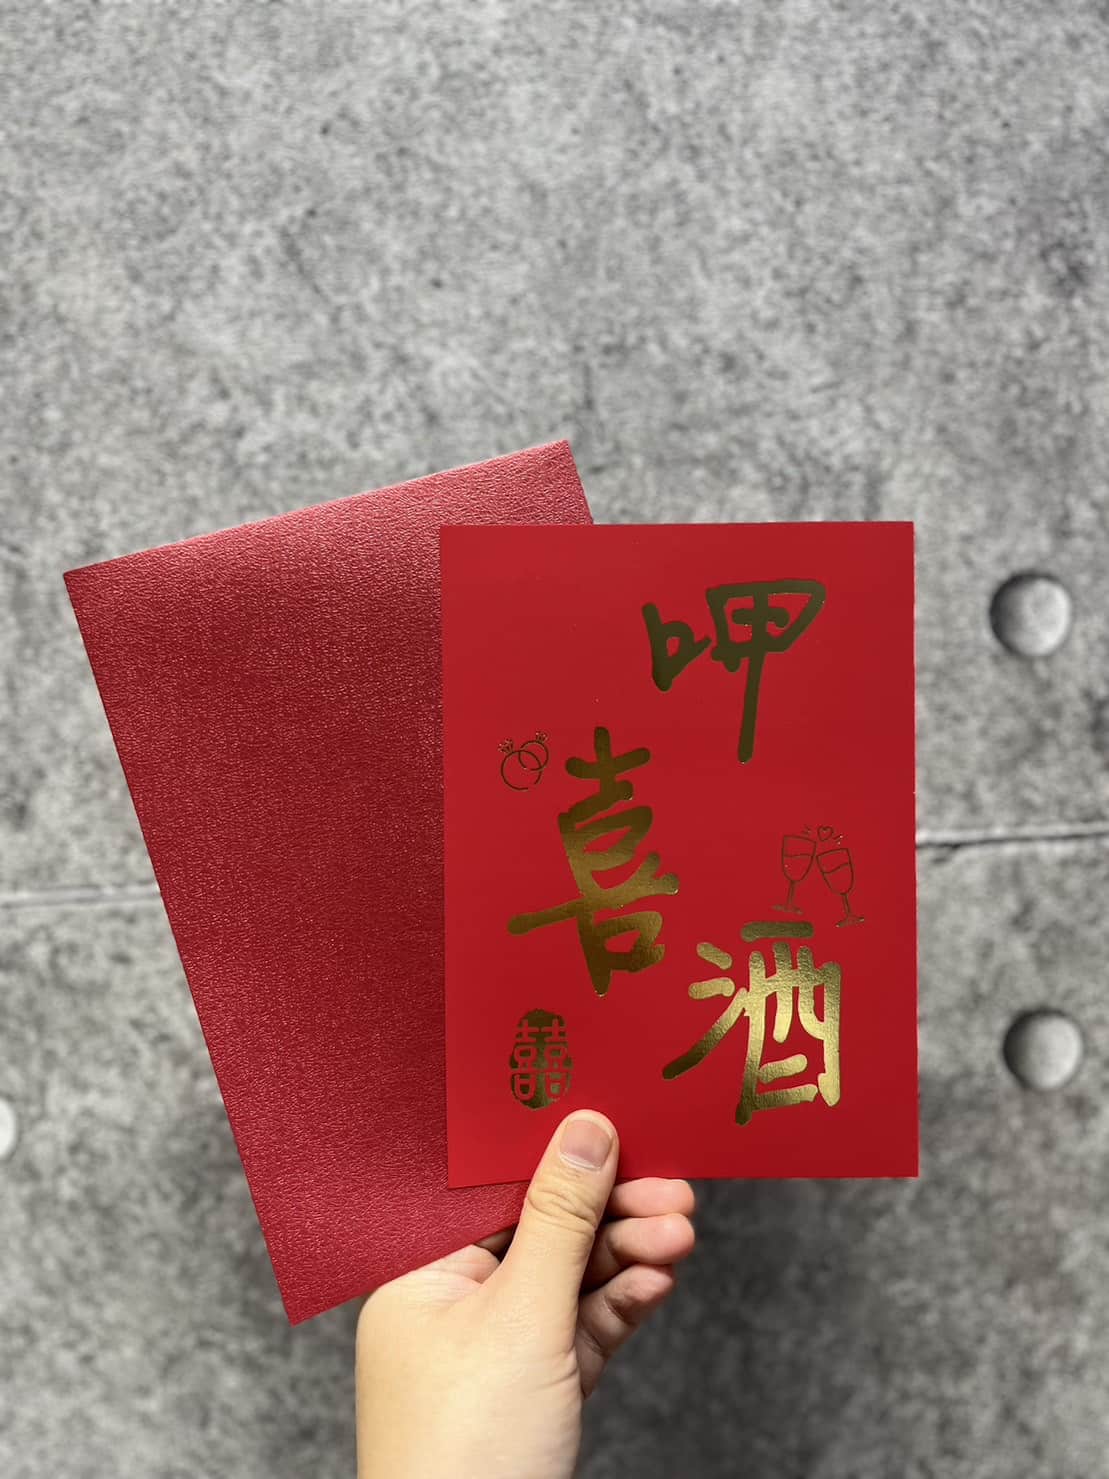 呷
喜
酒
囍